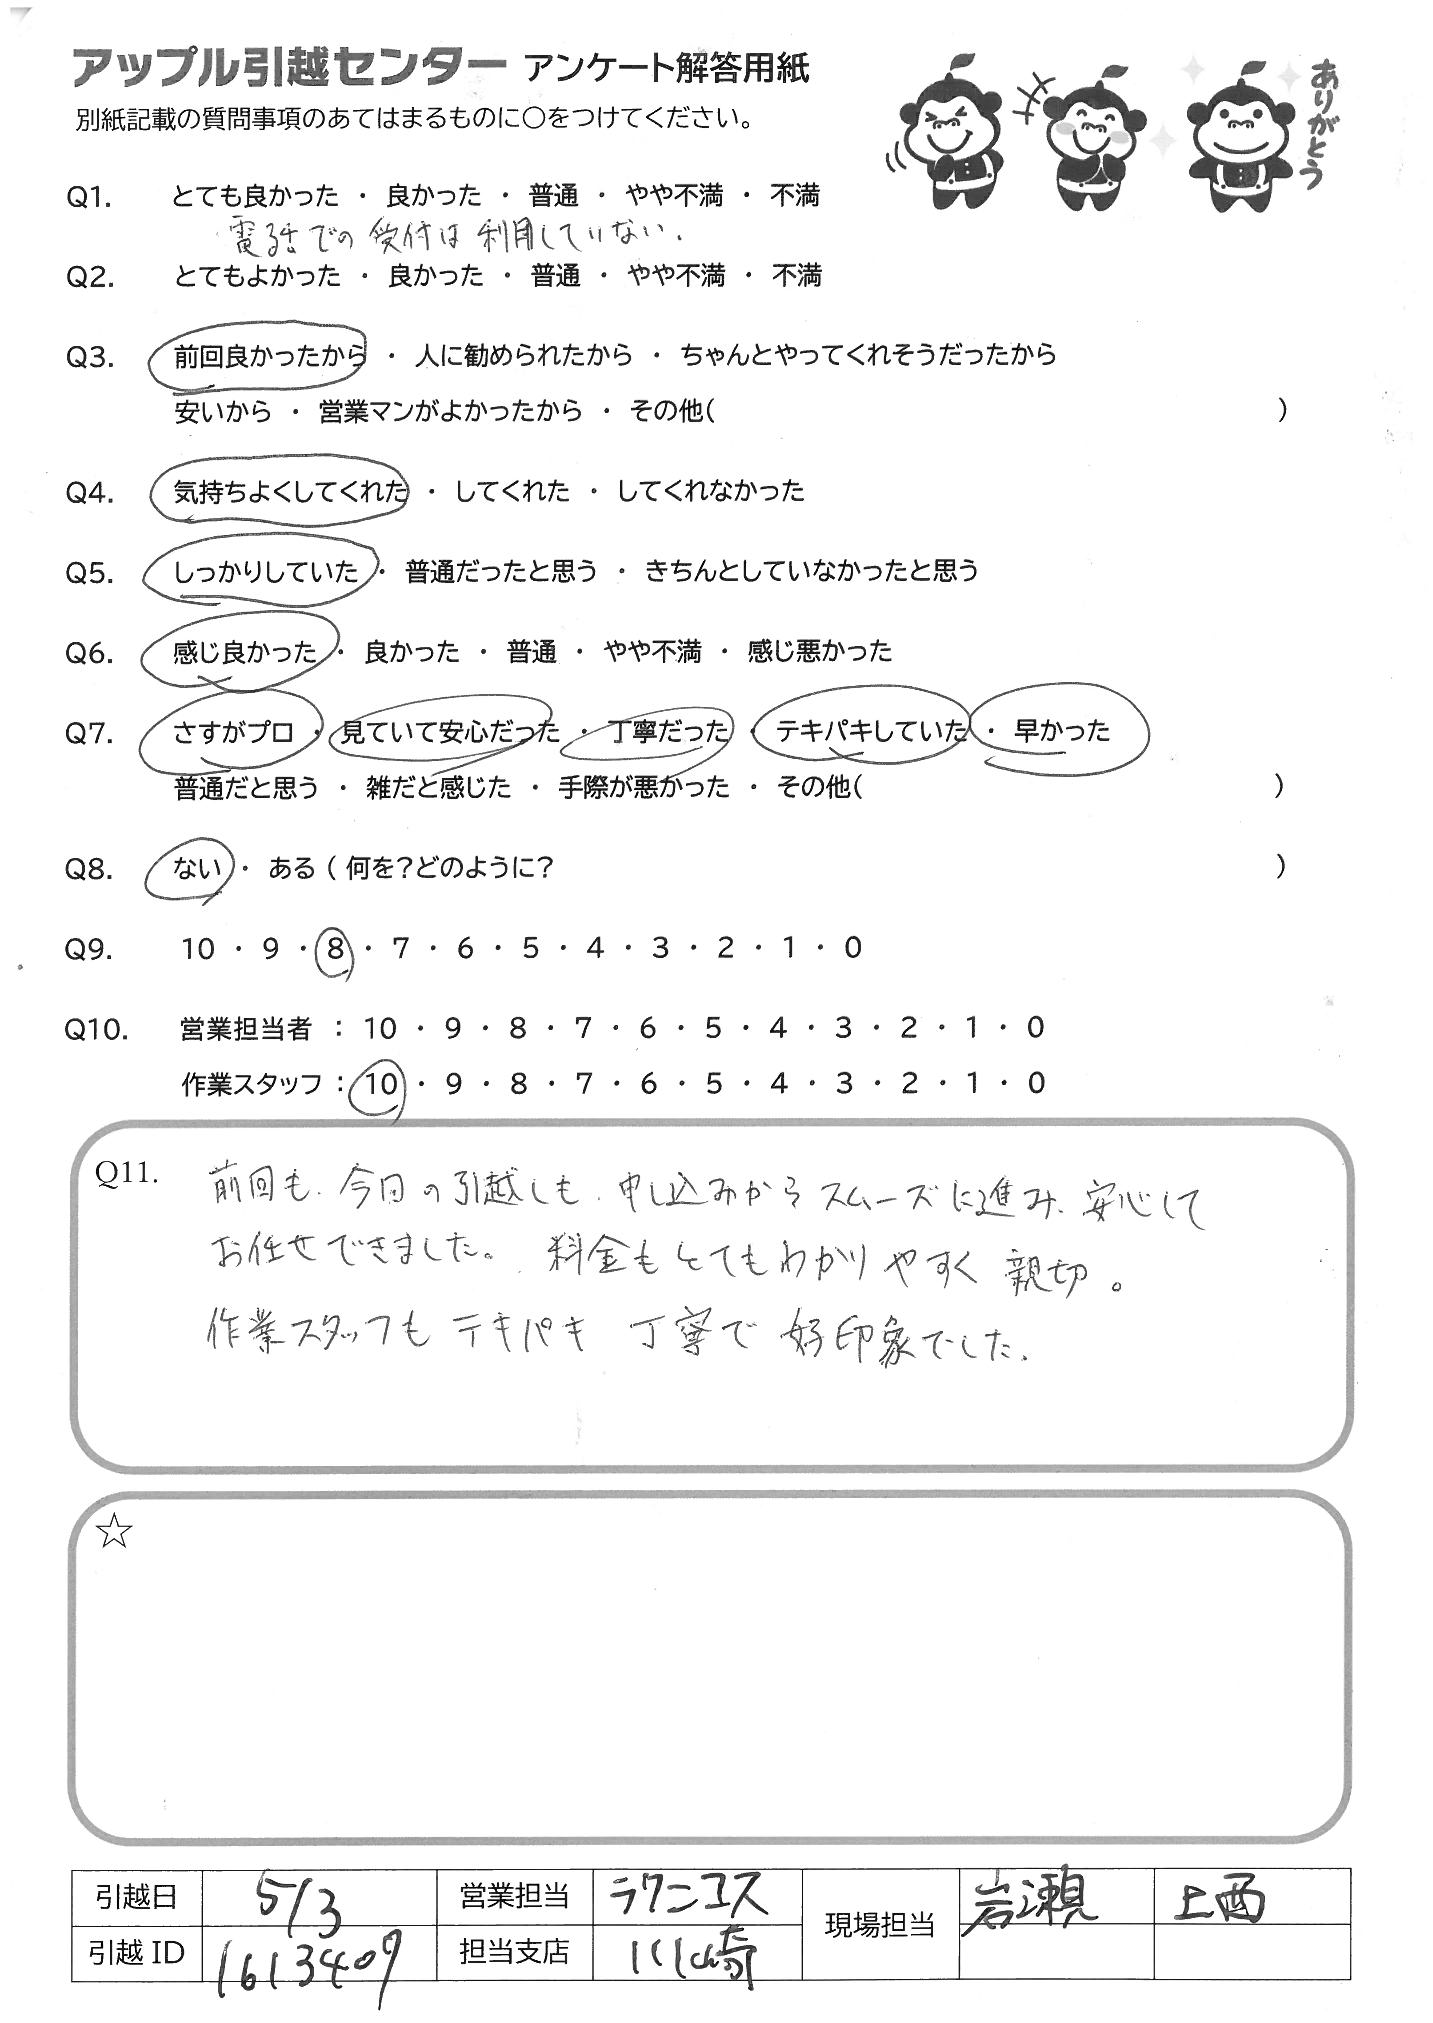 アップル引越センター アンケート解答用紙
ありがとう
別紙記載の質問事項のあてはまるものに○をつけてください。
Q1. とても良かった ・ 良かった ・ 普通 ・ やや不満 ・ 不満
電話での受付は利用していない.
Q2. とてもよかった ・ 良かった ・ 普通 ・ やや不満 ・ 不満
Q3. 前回良かったから ・ 人に勧められたから ・ ちゃんとやってくれそうだったから
安いから ・ 営業マンがよかったから ・ その他( )
Q4. 気持ちよくしてくれた ・ してくれた ・ してくれなかった
Q5. しっかりしていた ・ 普通だったと思う ・ きちんとしていなかったと思う
Q6. 感じ良かった ・ 良かった ・ 普通 ・ やや不満 ・ 感じ悪かった
Q7. さすがプロ ・ 見ていて安心だった ・ 丁寧だった ・ テキパキしていた ・ 早かった
普通だと思う ・ 雑だと感じた ・ 手際が悪かった ・ その他( )
Q8. ない ・ ある ( 何を?どのように? )
Q9. 10 ・ 9 ・ 8 ・ 7 ・ 6 ・ 5 ・ 4 ・ 3 ・ 2 ・ 1 ・ 0
Q10. 営業担当者 : 10 ・ 9 ・ 8 ・ 7 ・ 6 ・ 5 ・ 4 ・ 3 ・ 2 ・ 1 ・ 0
作業スタッフ : 10 ・ 9 ・ 8 ・ 7 ・ 6 ・ 5 ・ 4 ・ 3 ・ 2 ・ 1 ・ 0
Q11. 前回も、今日の引越しも、申し込みからスムーズに進み、安心して
お任せできました。 料金もとてもわかりやすく 親切。
作業スタッフも テキパキ 丁寧で 好印象でした.
☆
引越日 5/3 営業担当 ラクニコス 現場担当 岩瀬 上西
引越 ID 1613409 担当支店 川崎